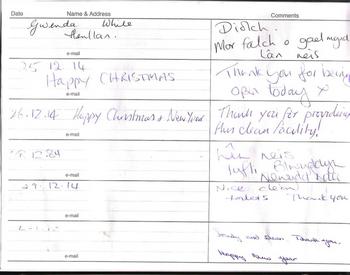 Date Name & Address Comments
Gwenda White Diolch.
Henllan. Mor falch o gael
e-mail Lân neis
25.12.14 Thank you for being
Happy CHRISTMAS open today x
e-mail
26.12.14 Happy Christmas & New Year Thank you for providing
e-mail this clean facility!
Lân neis
e-mail
29.12.14 Nice clean
toilets Thank you
e-mail
and clean. Thank you.
e-mail Happy new year